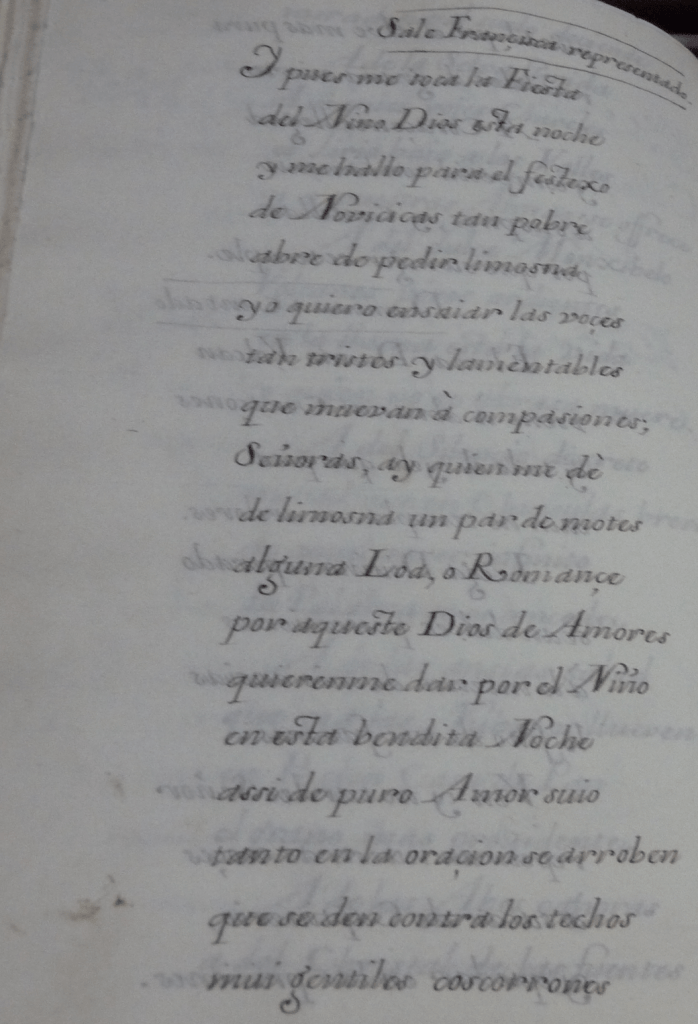 Sale Francisca representado
Y pues me toca la Fiesta
del Niño Dios esta noche
y me hallo para el festexo
de Novicicas tan pobre
abre de pedir limosna
yo quiero ensaiar las voçes
tan tristes y lamentables
que muevan à compasiones;
Señoras, ay quien me dè
de limosna un par de motes
alguna Loa, o Romançe
por aqueste Dios de Amores
quierenme dar por el Niño
en esta bendita Noche
assi de puro Amor suio
tanto en la oraçion se arroben
que se den contra los techos
mui gentiles coscorrones